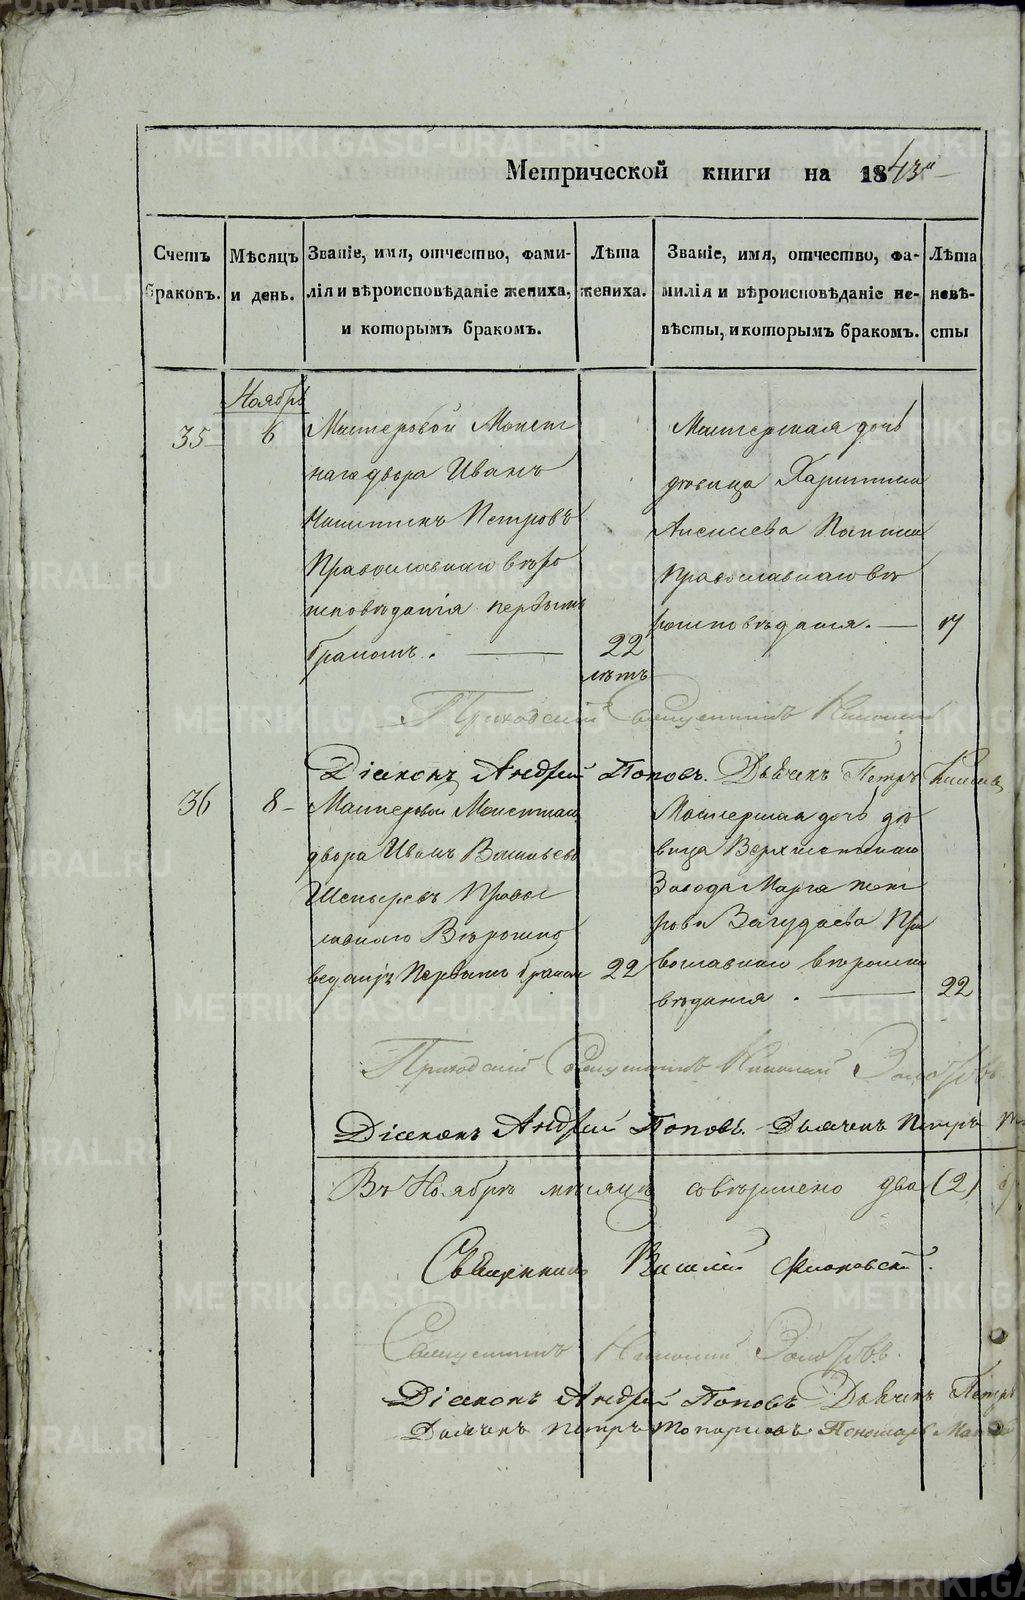 Метрической книги на 1843й
Счетъ браковъ.
Мѣсяцъ и день.
Званіе, имя, отчество, фами-
лія и вѣроисповѣданіе жениха,
и которымъ бракомъ.
Лѣта
жениха.
Званіе, имя, отчество, фа-
милія и вѣроисповѣданіе не-
вѣсты, и которымъ бракомъ.
Лѣта
невѣ-
сты
Ноябрь
35
6
Мастеровой Монет
наго двора Иванъ
Петровъ
Православнаго вѣро
исповѣданія первымъ
бракомъ.
22
лѣтъ
Мастерская дочь
дѣвица Харитина
Алексѣева
Православнаго вѣ
роисповѣданія.
17
Приходскій Священникъ Николай
Діаконъ Андрей Поповъ. Дьячекъ Петръ
36
8
Мастеровой Монетнаго
двора Иванъ Васильевъ
Правос
лавнаго Вѣроиспо
веданія Первымъ бракомъ
22
Мастерская дочь дѣ
вица Верхисетскаго
Завода Марѳа Пет
рова Загудаева Пра
вославнаго вѣроиспо
вѣданія.
22
Приходскій Священникъ Николай
Діаконъ Андрей Поповъ. Дьячекъ Петръ
Въ Ноябрѣ мѣсяцѣ совѣршено два (2)
Священникъ Василій Фіоковскій.
Священникъ Николай
Діаконъ Андрей Поповъ Дьячекъ Петръ
Дьячекъ Петръ Топорковъ Пономарь
METRIKI.GASO-URAL.RU